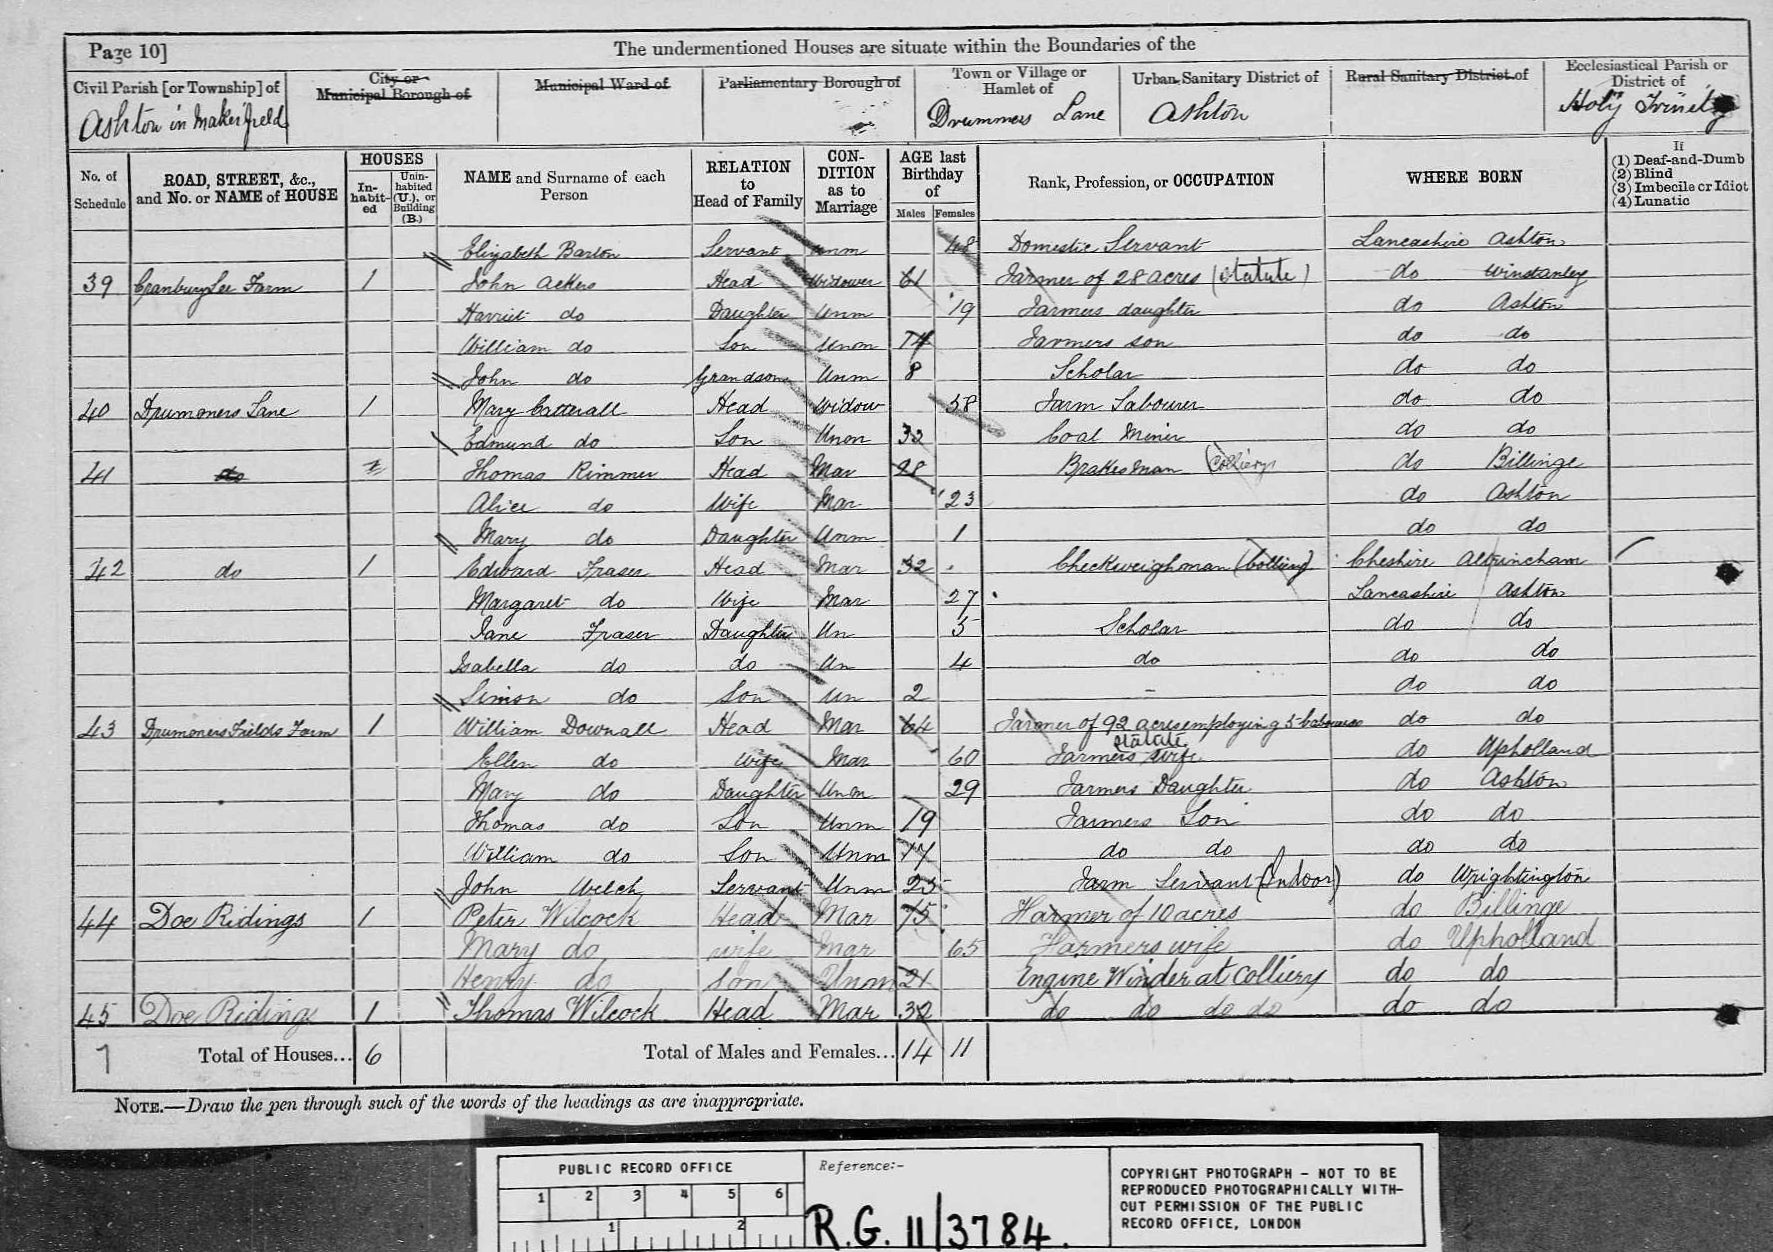 Page 10]
The undermentioned Houses are situate within the Boundaries of the
Civil Parish [or Township] of
City or Municipal Borough of
Municipal Ward of
Parliamentary Borough of
Town or Village or Hamlet of
Urban Sanitary District of
Rural Sanitary District of
Ecclesiastical Parish or District of
Ashton in Makerfield Drummers Lane Ashton Holy Trinity
No. of Schedule
ROAD, STREET, &c., and No. or NAME of HOUSE
HOUSES
In-habit-ed
Unin-habited (U.), or Building (B.)
NAME and Surname of each Person
RELATION to Head of Family
CON-DITION as to Marriage
AGE last Birthday of
Males Females
Rank, Profession, or OCCUPATION
WHERE BORN
If
(1) Deaf-and-Dumb
(2) Blind
(3) Imbecile or Idiot
(4) Lunatic
Elizabeth Barton Servant Unm 48 Domestic Servant Lancashire Ashton
39 Cranbury Lee Farm 1 John Ackers Head Widower 61 Farmer of 28 acres (Statute) do Winstanley
Harriet do Daughter Unm 19 Farmers daughter do Ashton
William do Son Unm Farmers son do do
John do Grandson Unm 8 Scholar do do
40 Drummers Lane 1 Mary Catterall Head Widow 58 Farm Labourer do do
Edmund do Son Unm 32 Coal Miner do do
41 do Thomas Rimmer Head Mar 28 Brakesman (Colliery) do Billinge
Alice do Wife Mar 23 do Ashton
Mary do Daughter Unm 1 do do
42 do 1 Edward Fraser Head Mar 32 Checkweighman (Colliery) Cheshire Altrincham
Margaret do Wife Mar 27 Lancashire Ashton
Jane Fraser Daughter Un 5 Scholar do do
Isabella do do Un 4 do do do
Simon do Son Un 2 - do do
43 Drummers Fields Farm 1 William Downall Head Mar 64 Farmer of 92 acres employing 5 Labourers do do
Statute
Ellen do Wife Mar 60 Farmers Wife do Upholland
Mary do Daughter Unm 29 Farmers Daughter do Ashton
Thomas do Son Unm 19 Farmers Son do do
William do Son Unm 17 do do do do
John Welch Servant Unm 25 Farm Servant (Indoor) do Wrightington
44 Doe Ridings 1 Peter Wilcock Head Mar 75 Farmer of 10 acres do Billinge
Mary do wife Mar 65 Farmers wife do Upholland
Henry do Son Unm 21 Engine Winder at Colliery do do
45 Doe Ridings 1 Thomas Wilcock Head Mar 32 do do do do do do
7 Total of Houses... 6 Total of Males and Females... 14 11
NOTE.—Draw the pen through such of the words of the headings as are inappropriate.
PUBLIC RECORD OFFICE
1 2 3 4 5 6
1 2
Reference:-
R.G. 11/3784.
COPYRIGHT PHOTOGRAPH - NOT TO BE
REPRODUCED PHOTOGRAPHICALLY WITH-
OUT PERMISSION OF THE PUBLIC
RECORD OFFICE, LONDON